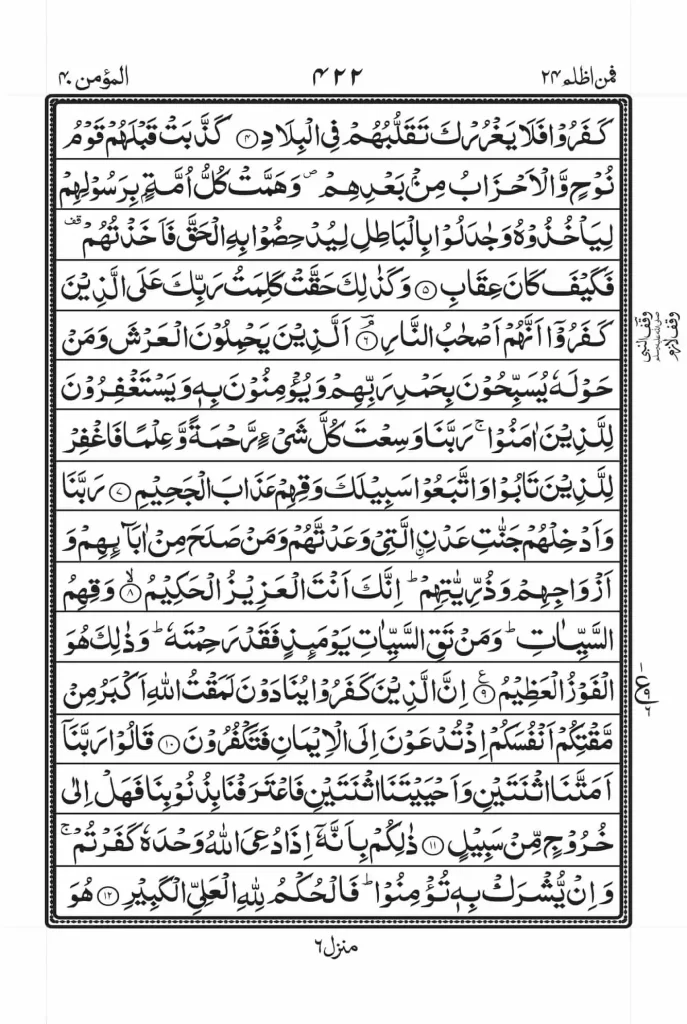 فمن اظلم ٢٤
٤٢٢
المؤمن ٤٠
كَفَرُوۡا فَلَا يَغۡرُرۡكَ تَقَلُّبُهُمۡ فِى الۡبِلَادِ ﴿۴﴾ كَذَّبَتۡ قَبۡلَهُمۡ قَوۡمُ
نُوۡحٍ وَّالۡاَحۡزَابُ مِنۡۢ بَعۡدِهِمۡ ۖ وَهَمَّتۡ كُلُّ اُمَّةٍۢ بِرَسُوۡلِهِمۡ
لِيَاۡخُذُوۡهُ وَجٰدَلُوۡا بِالۡبَاطِلِ لِيُدۡحِضُوۡا بِهِ الۡحَقَّ فَاَخَذۡتُهُمۡ قف
فَكَيۡفَ كَانَ عِقَابِ ﴿۵﴾ وَكَذٰلِكَ حَقَّتۡ كَلِمَتُ رَبِّكَ عَلَى الَّذِيۡنَ
كَفَرُوۡۤا اَنَّهُمۡ اَصۡحٰبُ النَّارِ ۘ‏ ﴿۶﴾ اَلَّذِيۡنَ يَحۡمِلُوۡنَ الۡعَرۡشَ وَمَنۡ
وقف النبي صلى الله عليه وسلم
وقف لازم
حَوۡلَهٗ يُسَبِّحُوۡنَ بِحَمۡدِ رَبِّهِمۡ وَيُؤۡمِنُوۡنَ بِهٖ وَيَسۡتَغۡفِرُوۡنَ
لِلَّذِيۡنَ اٰمَنُوۡا ۚ رَبَّنَا وَسِعۡتَ كُلَّ شَىۡءٍ رَّحۡمَةً وَّعِلۡمًا فَاغۡفِرۡ
لِلَّذِيۡنَ تَابُوۡا وَاتَّبَعُوۡا سَبِيۡلَكَ وَقِهِمۡ عَذَابَ الۡجَحِيۡمِ ﴿۷﴾ رَبَّنَا
وَاَدۡخِلۡهُمۡ جَنّٰتِ عَدۡنِ اۨلَّتِىۡ وَعَدْتَّهُمۡ وَمَنۡ صَلَحَ مِنۡ اٰبَآئِهِمۡ وَ
اَزۡوَاجِهِمۡ وَذُرِّيّٰتِهِمۡ ؕ اِنَّكَ اَنۡتَ الۡعَزِيۡزُ الۡحَكِيۡمُ ۙ‏ ﴿۸﴾ وَقِهِمُ
السَّيِّاٰتِ ؕ وَمَنۡ تَقِ السَّيِّاٰتِ يَوۡمَئِذٍ فَقَدۡ رَحِمۡتَهٗ ؕ وَذٰلِكَ هُوَ
الۡفَوۡزُ الۡعَظِيۡمُ ﴿۹﴾ ع اِنَّ الَّذِيۡنَ كَفَرُوۡا يُنَادَوۡنَ لَمَقۡتُ اللّٰهِ اَكۡبَرُ مِنۡ
مَّقۡتِكُمۡ اَنۡفُسَكُمۡ اِذۡ تُدۡعَوۡنَ اِلَى الۡاِيۡمَانِ فَتَكۡفُرُوۡنَ ﴿۱۰﴾ قَالُوۡا رَبَّنَاۤ
اَمَتَّنَا اثۡنَتَيۡنِ وَاَحۡيَيۡتَنَا اثۡنَتَيۡنِ فَاعۡتَرَفۡنَا بِذُنُوۡبِنَا فَهَلۡ اِلٰى
خُرُوۡجٍ مِّنۡ سَبِيۡلٍ ﴿۱۱﴾ ذٰلِكُمۡ بِاَنَّهٗۤ اِذَا دُعِىَ اللّٰهُ وَحۡدَهٗ كَفَرۡتُمۡ ۚ
وَاِنۡ يُّشۡرَكۡ بِهٖ تُؤۡمِنُوۡا ؕ فَالۡحُكۡمُ لِلّٰهِ الۡعَلِىِّ الۡكَبِيۡرِ ﴿۱۲﴾ هُوَ
منزل ٦